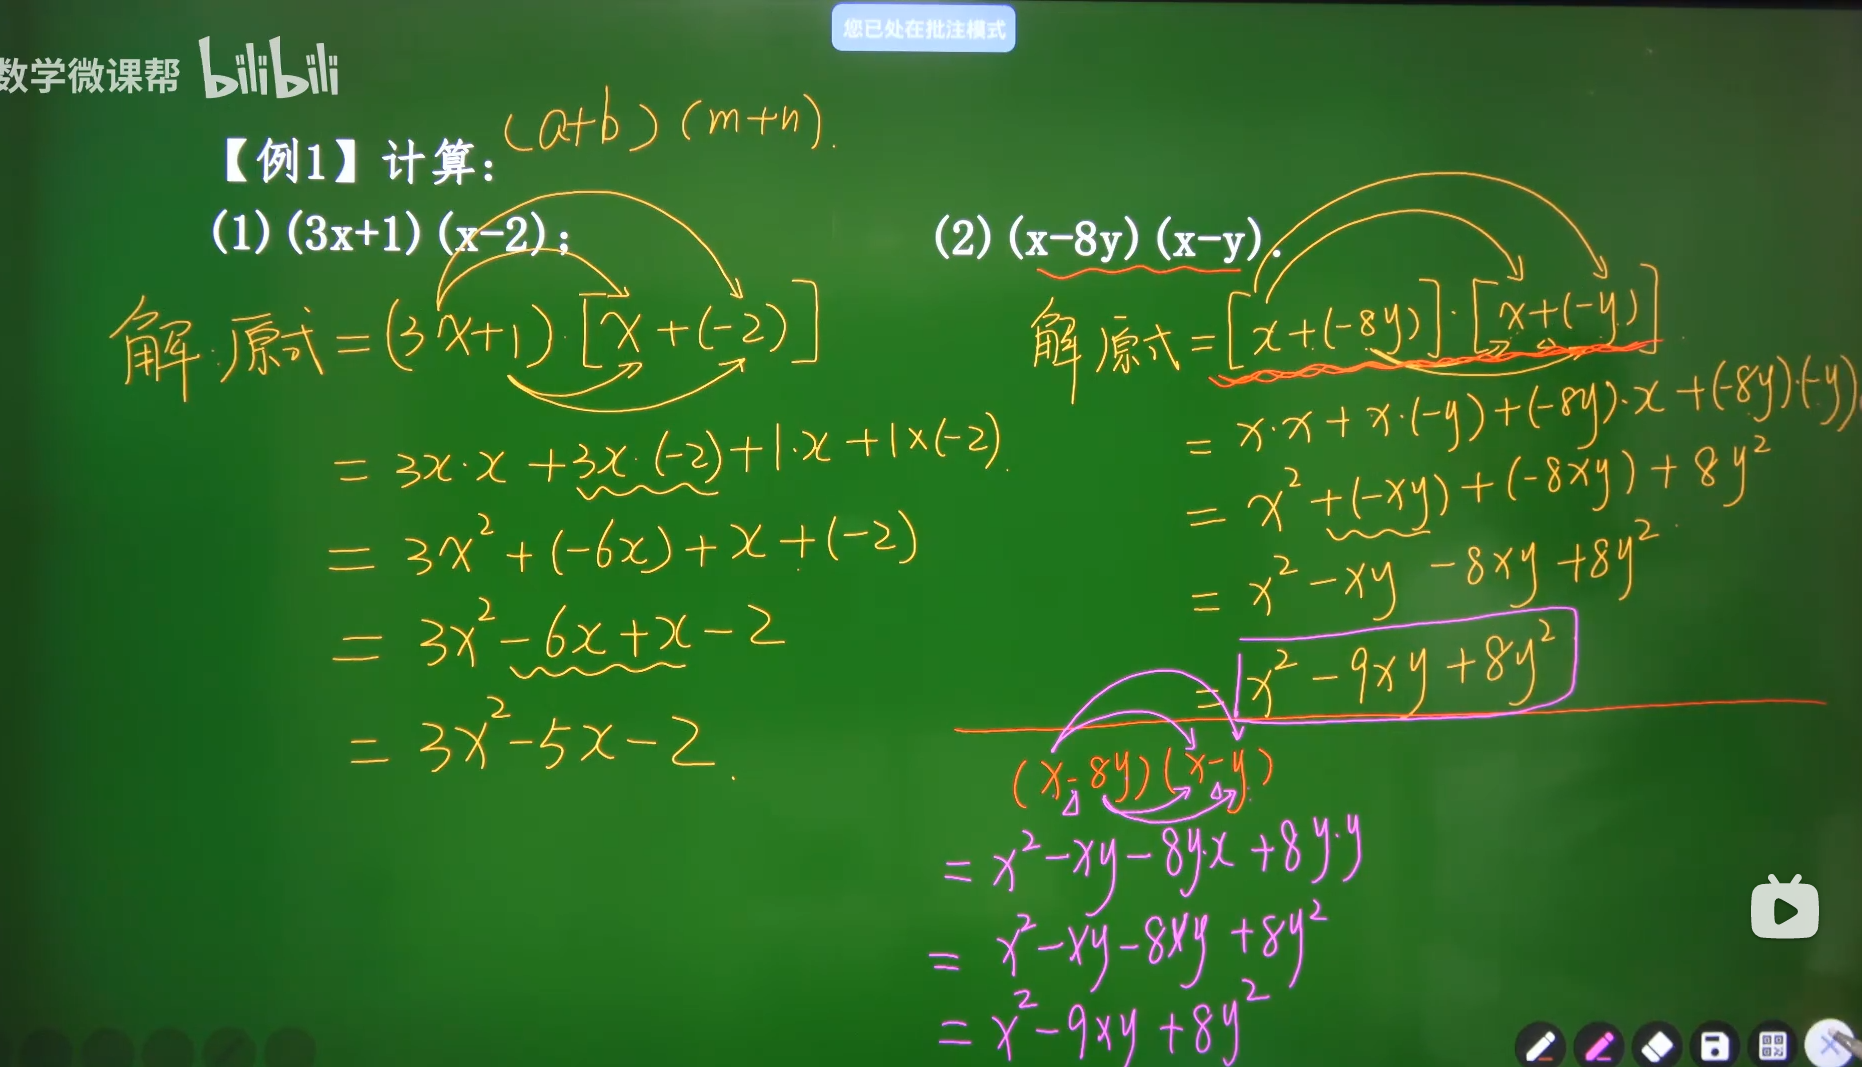 您已处在批注模式
数学微课帮 bilibili
(a+b)(m+n).
【例1】计算:
(1)(3x+1)(x-2);
解:原式=(3x+1)·[x+(-2)]
=3x·x+3x·(-2)+1·x+1×(-2).
=3x²+(-6x)+x+(-2)
=3x²-6x+x-2
=3x²-5x-2.
(2)(x-8y)(x-y).
解:原式=[x+(-8y)]·[x+(-y)].
=x·x+x·(-y)+(-8y)·x+(-8y)·(-y)
=x²+(-xy)+(-8xy)+8y²
=x²-xy-8xy+8y²
=x²-9xy+8y²
(x-8y)(x-y)
=x²-xy-8y·x+8y·y
=x²-xy-8xy+8y²
=x²-9xy+8y²